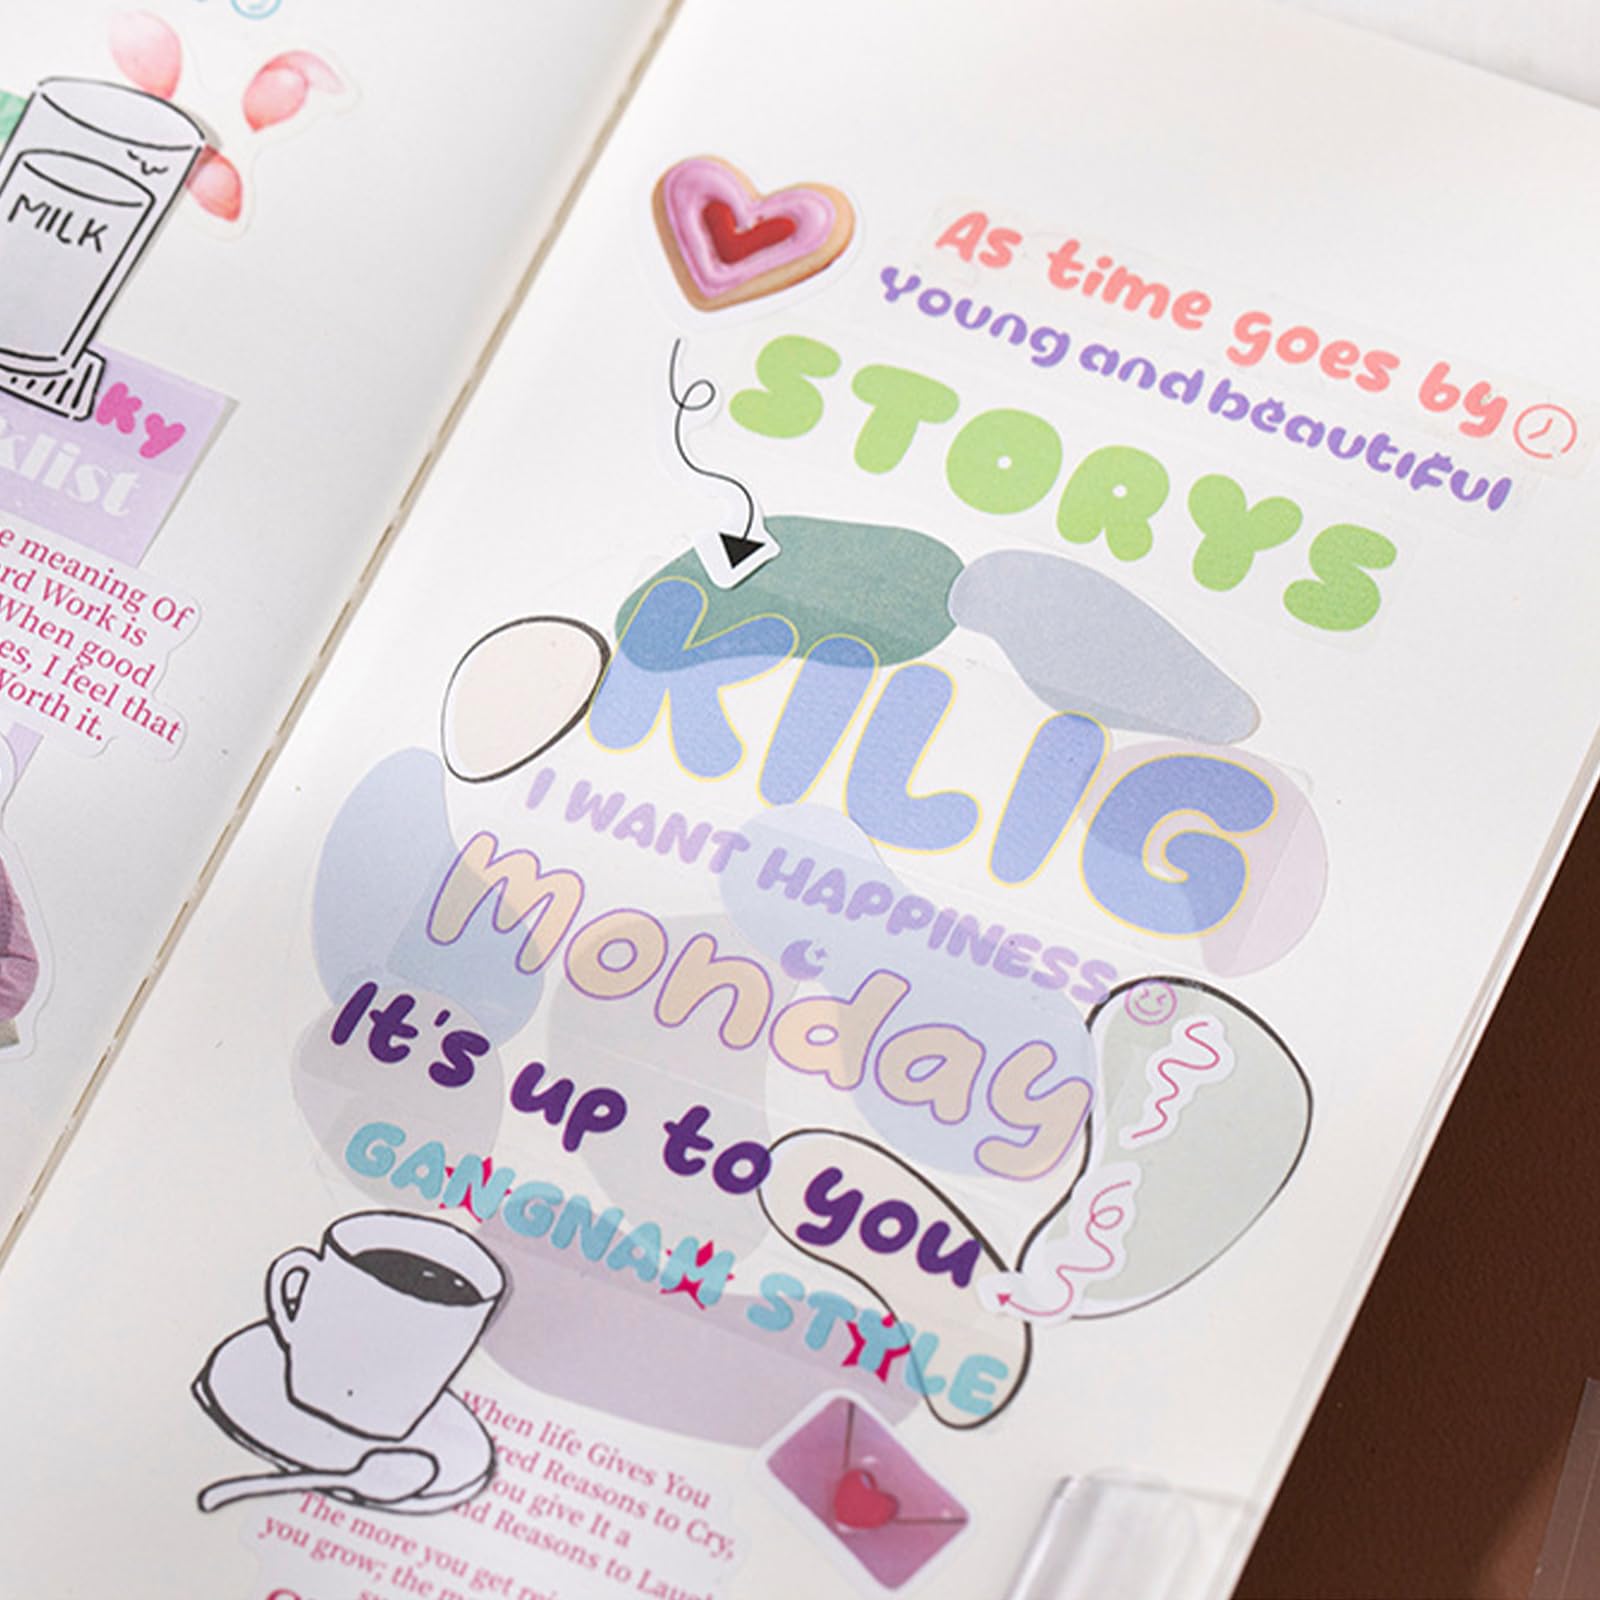 MILK
ky
klist
e meaning Of
rd Work is
When good
es, I feel that
Worth it.
As time goes by
Young and beautiful
STORYS
KILIG
I WANT HAPPINESS
Monday
It's up to you
GANGNAM STYLE
When life Gives You
red Reasons to Cry,
You give It a
nd Reasons to Laugh
The more you get rej
you grow; the m